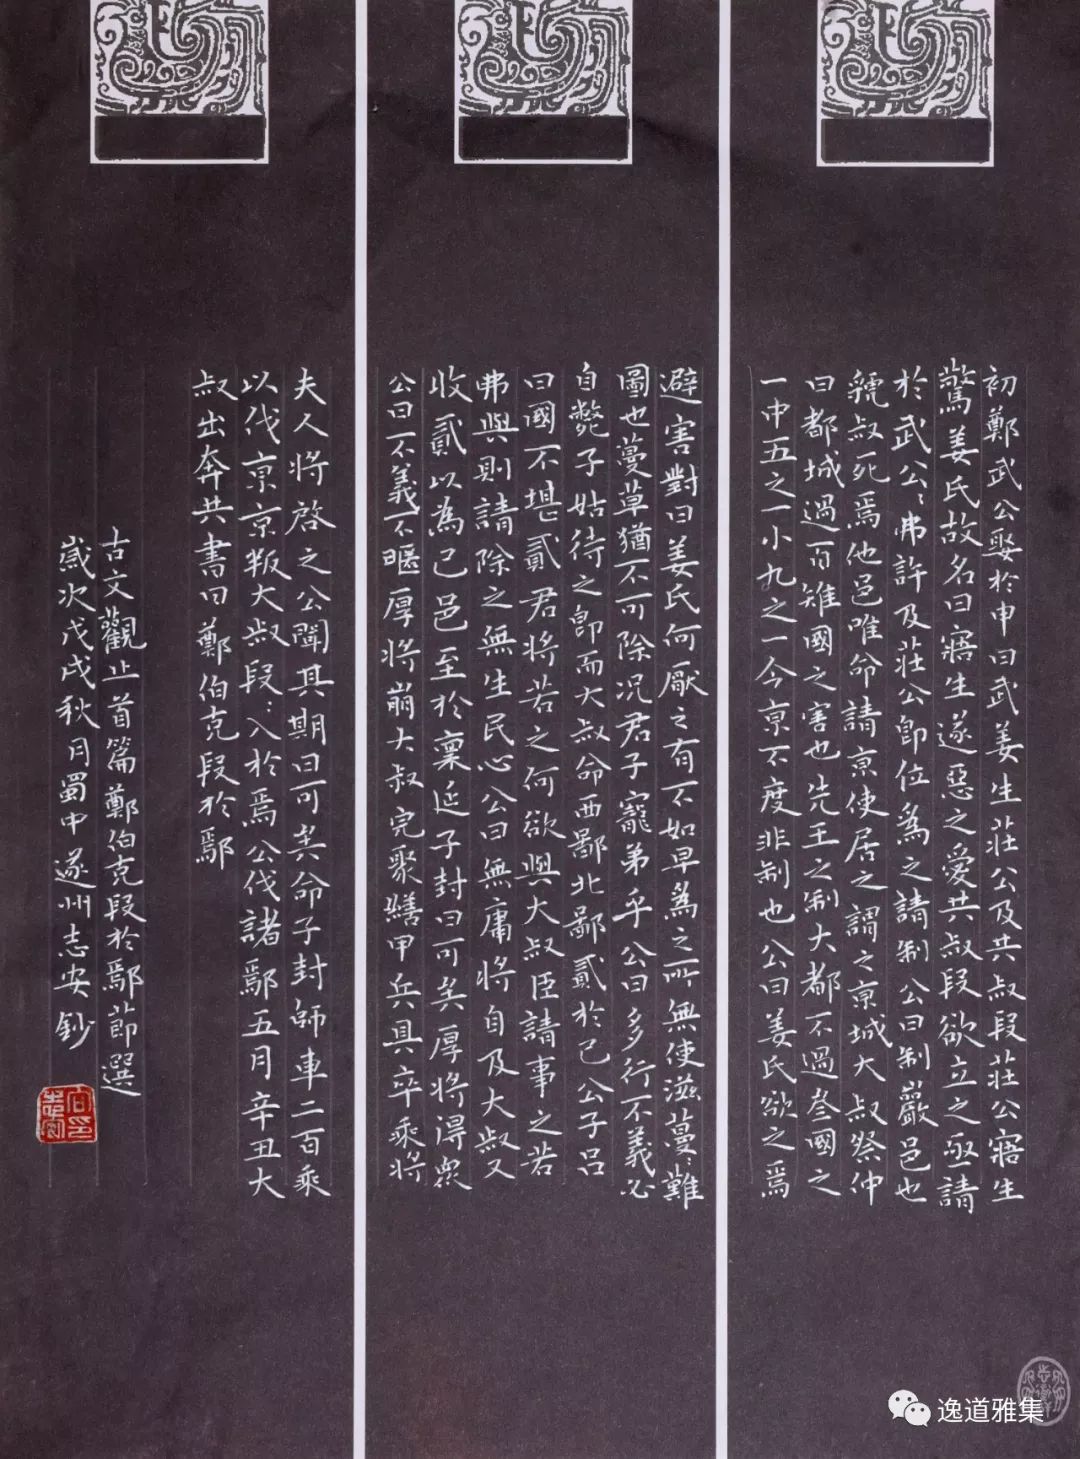 初鄭武公娶於申曰武姜生莊公及共叔段莊公寤生
驚姜氏故名曰寤生遂惡之愛共叔段欲立之亟請
於武公〻弗許及莊公即位為之請制公曰制巖邑也
虢叔死焉他邑唯命請亰使居之謂之亰城大叔祭仲
曰都城過百雉國之害也先王之制大都不過叁國之
一中五之一小九之一今亰不度非制也公曰姜氏欲之焉
避害對曰姜氏何厭之有不如早為之所無使滋蔓〻難
圖也蔓草猶不可除况君子寵弟乎公曰多行不義必
自斃子姑待之即而大叔命西鄙北鄙貳於己公子呂
曰國不堪貳君將若之何欲與大叔臣請事之若
弗與則請除之無生民心公曰無庸將自及大叔又
收貳以為己邑至於稟延子封曰可矣厚將得眾
公曰不義不暱厚將崩大叔完聚繕甲兵具卒乘將
夫人將啓之公聞其期曰可矣命子封師車二百乘
以伐亰亰叛大叔段〻入於焉公伐諸鄢五月辛丑大
叔出奔共書曰鄭伯克段於鄢
古文觀止首篇鄭伯克段於鄢節選
歲次戊戌秋月蜀中遂州志安鈔
逸道雅集